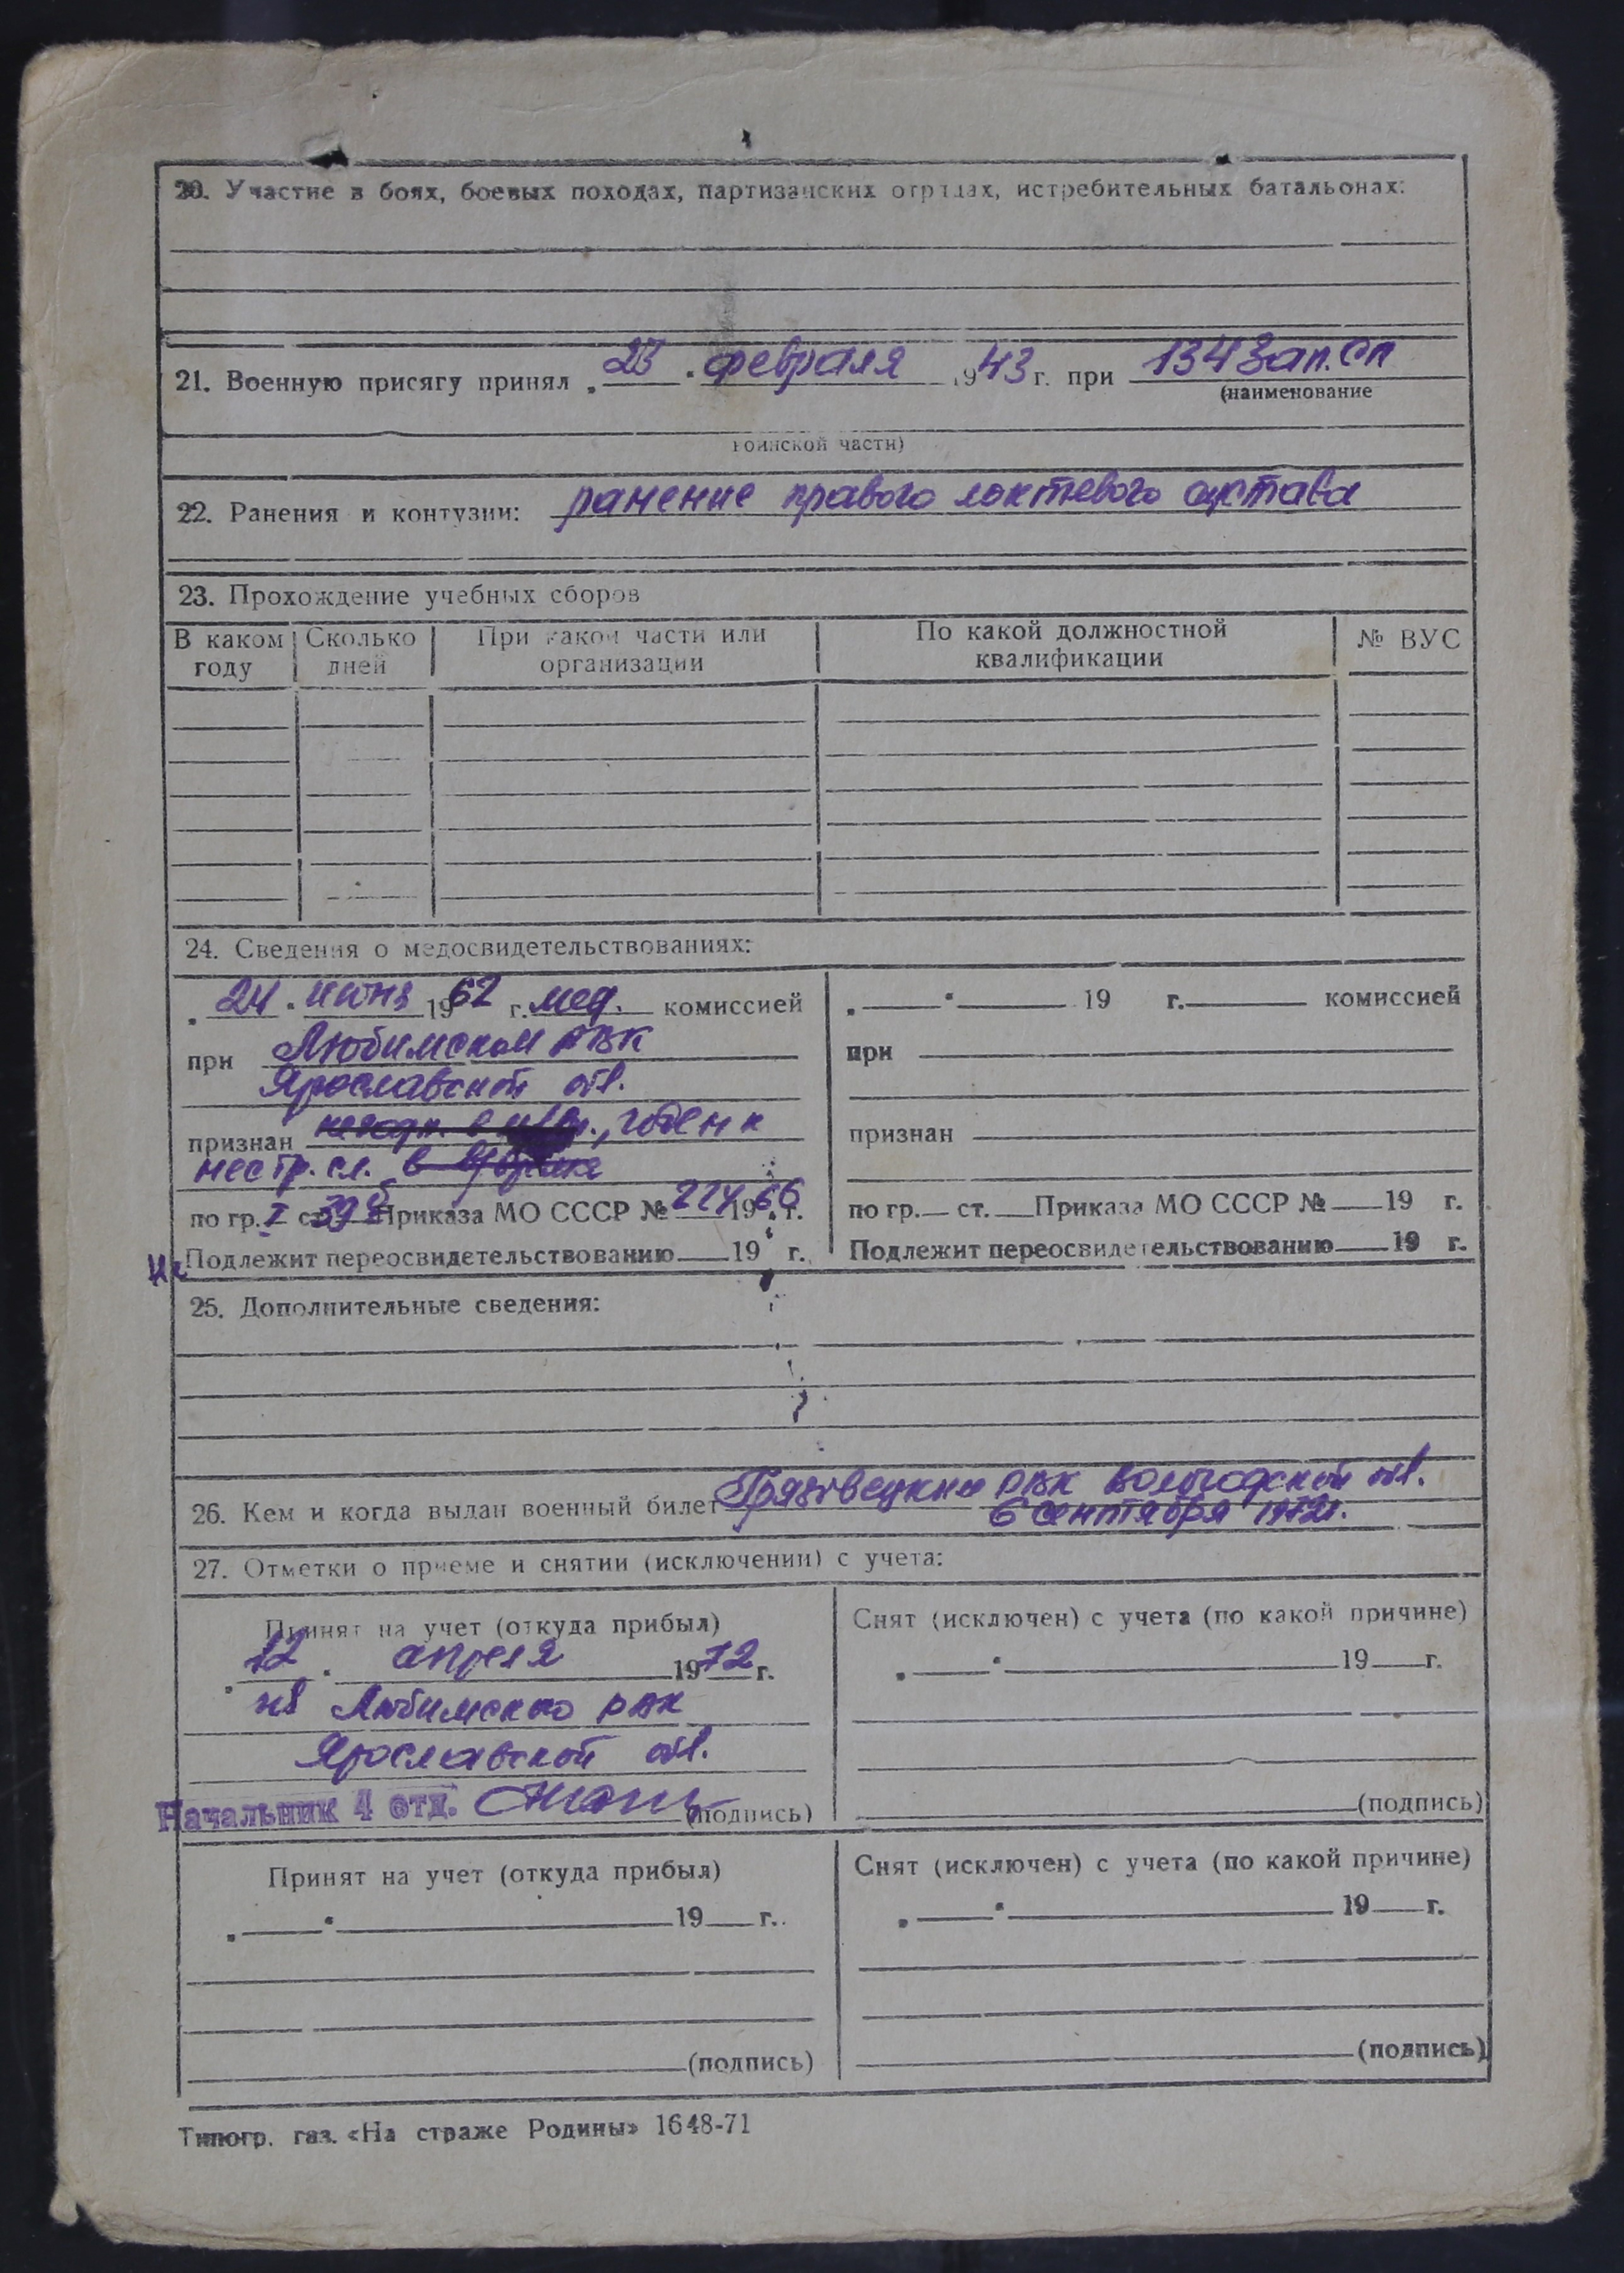 20. Участие в боях, боевых походах, партизанских отрядах, истребительных батальонах:
21. Военную присягу принял „ 23 “ февраля 1943 г. при 134 Зап. СП
(наименование
воинской части)
22. Ранения и контузии: ранение правого локтевого сустава
23. Прохождение учебных сборов
В каком году Сколько дней При какой части или организации По какой должностной квалификации № ВУС
24. Сведения о медосвидетельствованиях:
„ 24 “ июня 1962 г. мед. комиссией
при Любимском РВК
Ярославской обл.
признан негодн. в , годен к
нестр. сл. в
по гр. I ст. 39 б Приказа МО СССР № 224 1966 г.
Не Подлежит переосвидетельствованию 19 г.
„ “ 19 г. комиссией
при
признан
по гр. ст. Приказа МО СССР № 19 г.
Подлежит переосвидетельствованию 19 г.
25. Дополнительные сведения:
26. Кем и когда выдан военный билет Грязовецким РВК Вологодской обл.
6 сентября 1972г.
27. Отметки о приеме и снятии (исключении) с учета:
Принят на учет (откуда прибыл)
„ 12 “ апреля 1972 г.
из Любимского РВК
Ярославской обл.
Начальник 4 отд. (подпись)
Снят (исключен) с учета (по какой причине)
„ “ 19 г.
(подпись)
Принят на учет (откуда прибыл)
„ “ 19 г.
(подпись)
Снят (исключен) с учета (по какой причине)
„ “ 19 г.
(подпись)
Типогр. газ. «На страже Родины» 1648-71